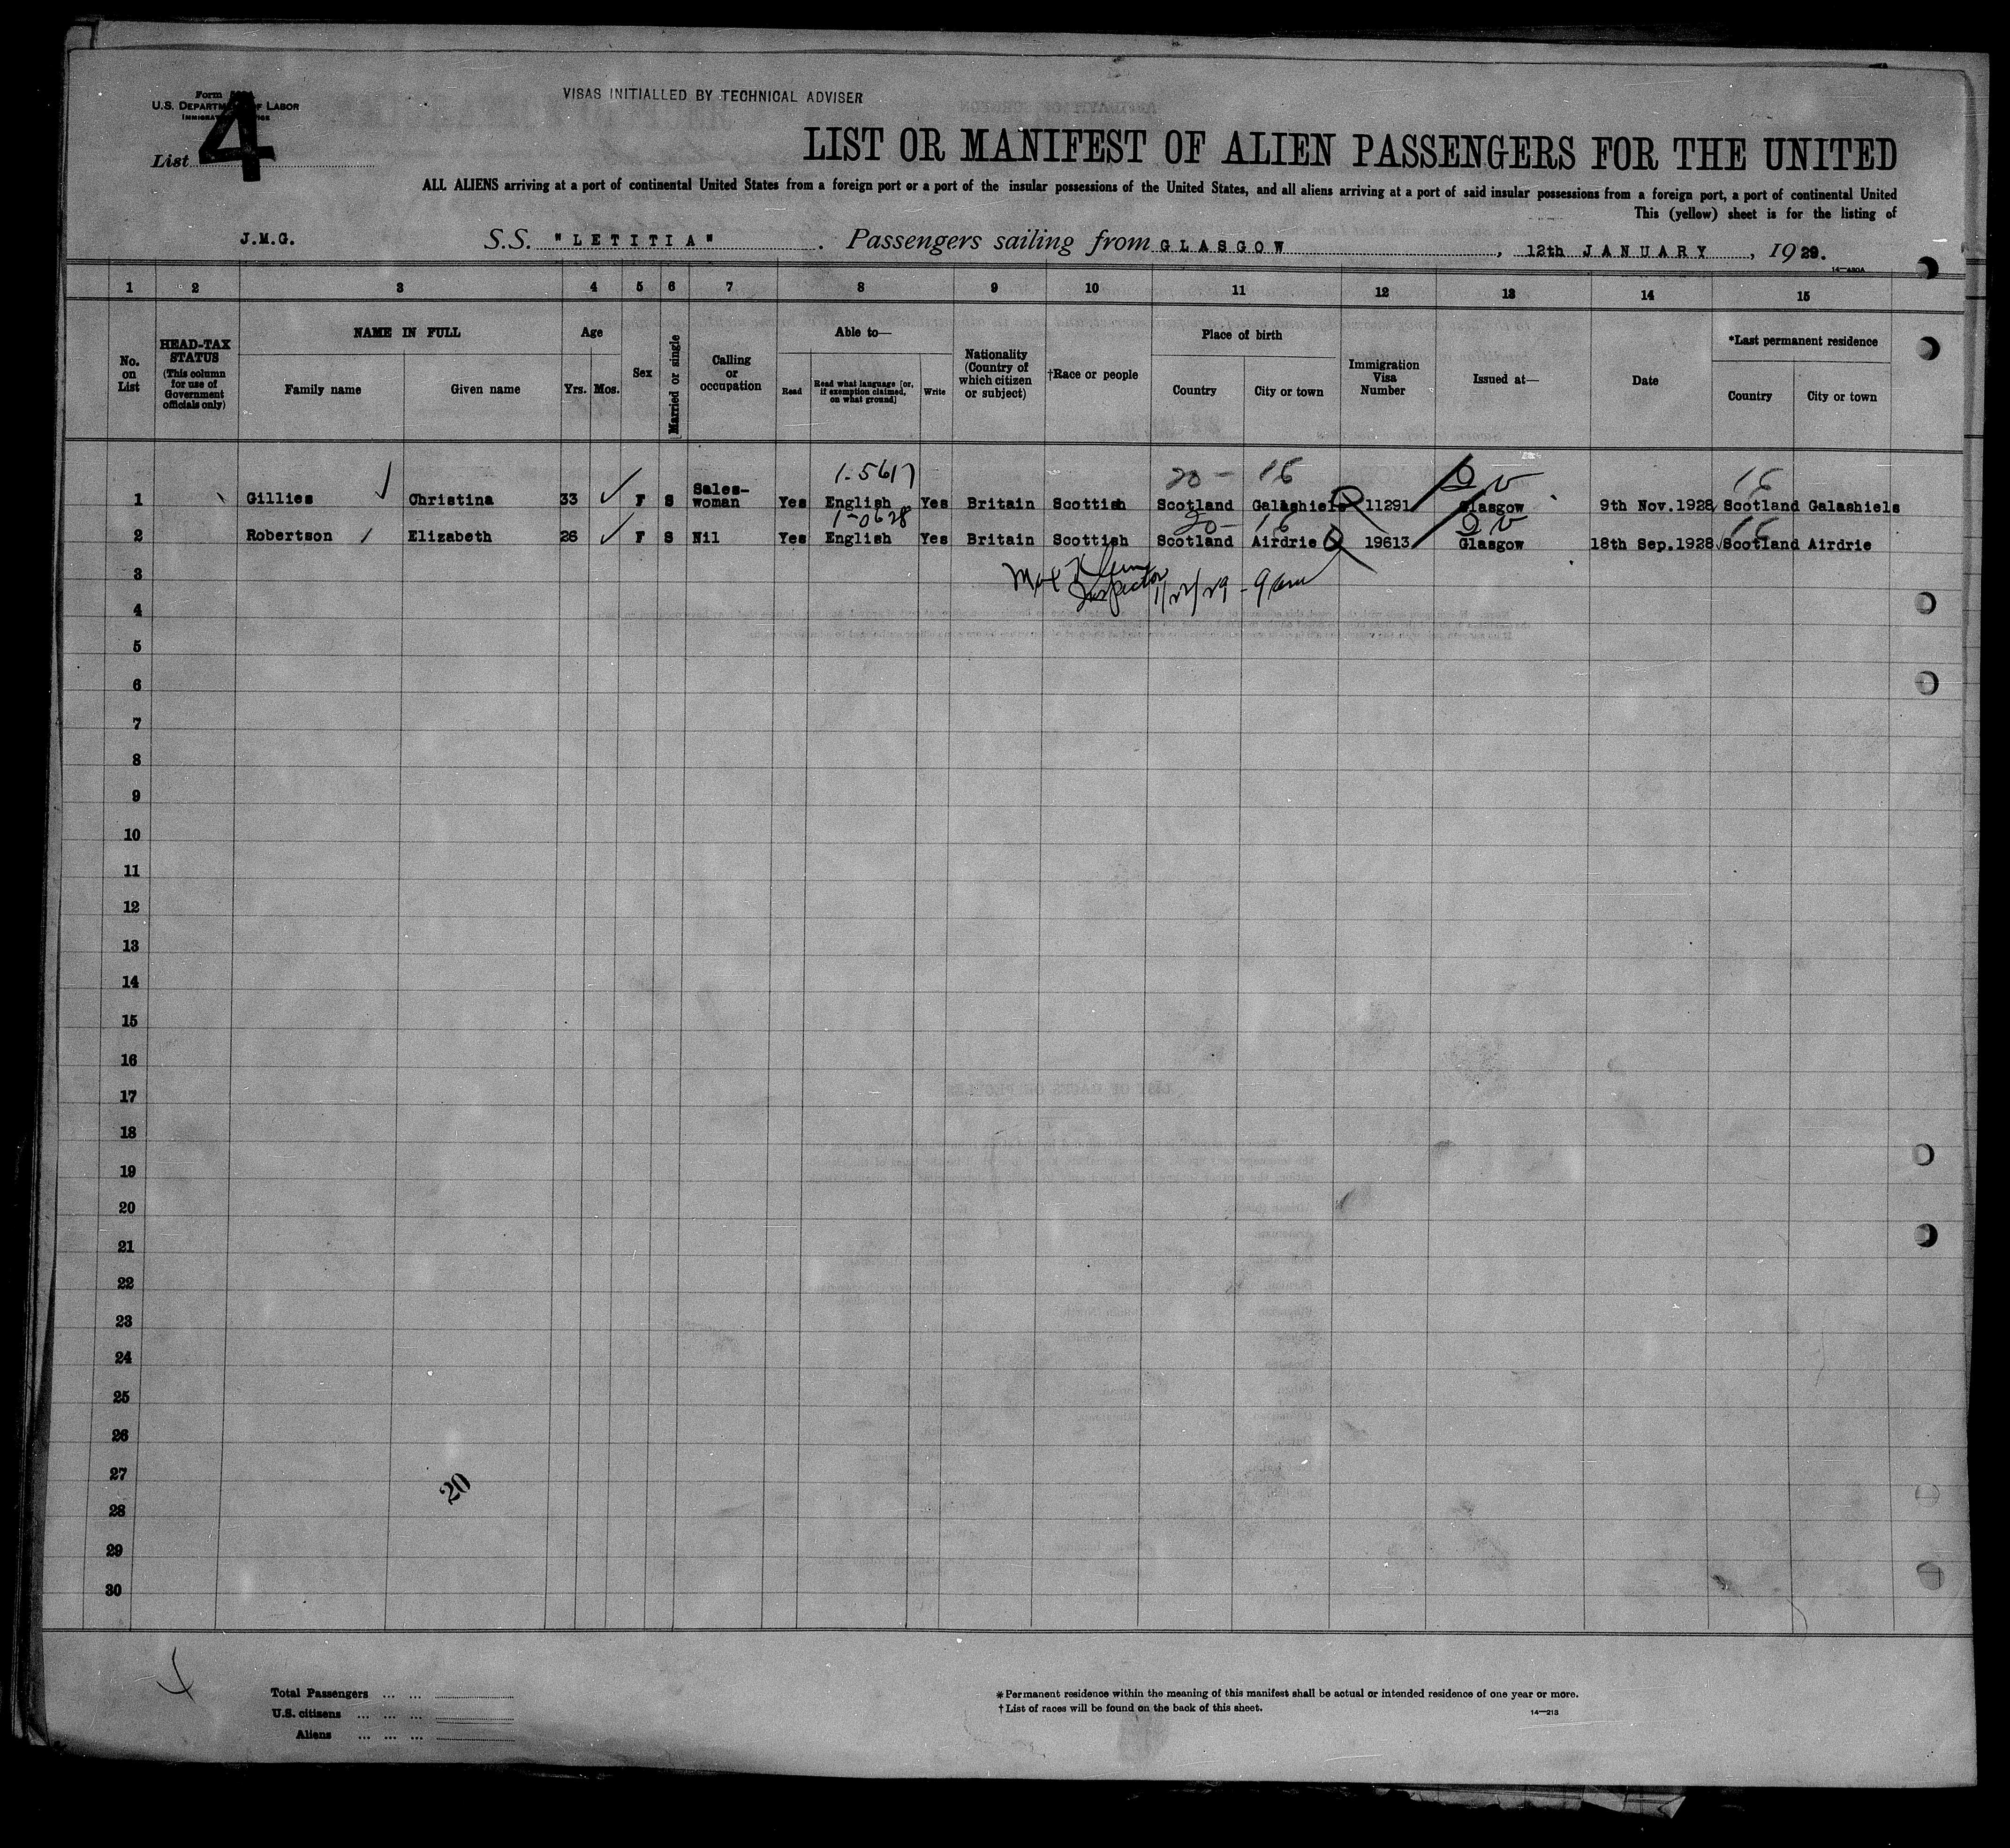 Form
U.S. DEPARTMENT OF LABOR
VISAS INITIALLED BY TECHNICAL ADVISER
List 4
LIST OR MANIFEST OF ALIEN PASSENGERS FOR THE UNITED
ALL ALIENS arriving at a port of continental United States from a foreign port or a port of the insular possessions of the United States, and all aliens arriving at a port of said insular possessions from a foreign port, a port of continental United
This (yellow) sheet is for the listing of
J.M.G. S.S. "LETITIA" . Passengers sailing from GLASGOW , 12th JANUARY , 1929.
1 2 3 4 5 6 7 8 9 10 11 12 13 14 15
No. on List
HEAD-TAX STATUS (This column for use of Government officials only)
NAME IN FULL
Family name Given name
Age
Yrs. Mos.
Sex
Married or single
Calling or occupation
Able to—
Read Read what language [or, if exemption claimed, on what ground] Write
Nationality (Country of which citizen or subject)
†Race or people
Place of birth
Country City or town
Immigration Visa Number
Issued at—
Date
*Last permanent residence
Country City or town
1-5617 20 - 16 16
1 Gillies Christina 33 F S Sales-woman Yes English Yes Britain Scottish Scotland Galashiels 11291 Glasgow 9th Nov.1928 Scotland Galashiels
1-0628 20- 16 16
2 Robertson Elizabeth 26 F S Nil Yes English Yes Britain Scottish Scotland Airdrie 19613 Glasgow 18th Sep.1928 Scotland Airdrie
3
Inspector 1/22/29 - 9am
4
5
6
7
8
9
10
11
12
13
14
15
16
17
18
19
20
21
22
23
24
25
26
27
20
28
29
30
Total Passengers ... ...
U.S. citizens ... ... ...
Aliens ... ... ...
*Permanent residence within the meaning of this manifest shall be actual or intended residence of one year or more.
†List of races will be found on the back of this sheet.
14—213